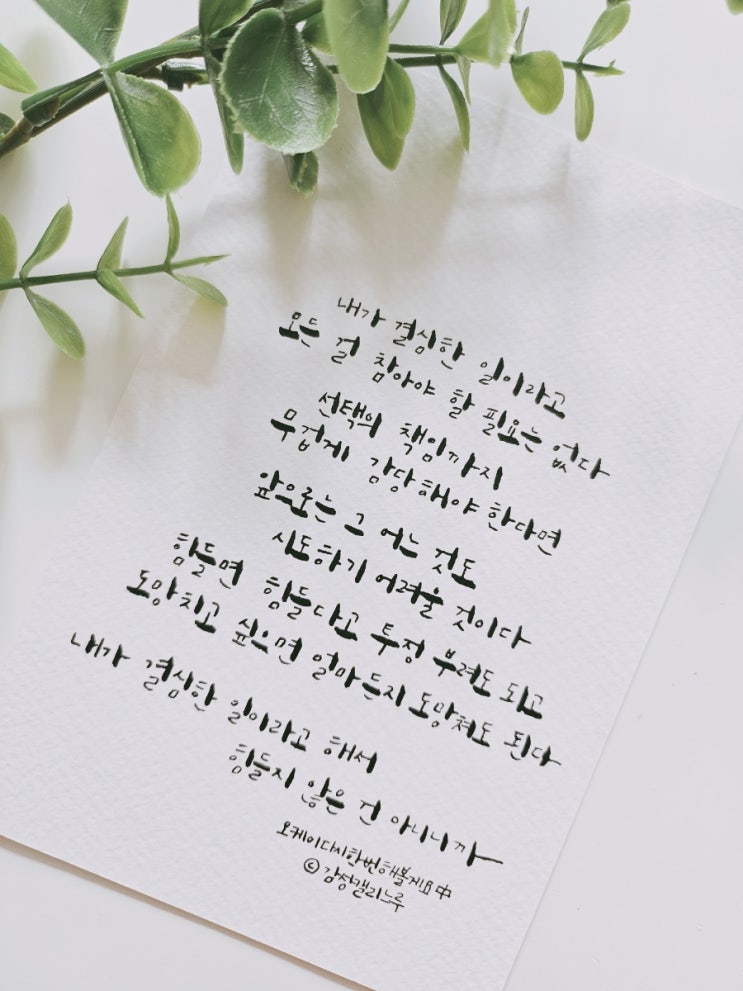 내가 결심한 일이라고
모든 걸 참아야 할 필요는 없다
선택의 책임까지
무겁게 감당해야 한다면
앞으로는 그 어느 것도
시도하기 어려울 것이다
힘들면 힘들다고 투정 부려도 되고
도망치고 싶으면 얼마든지 도망쳐도 된다
내가 결심한 일이라고 해서
힘들지 않은 건 아니니까
오케이다시한번해볼게요 中
©감성캘리노루